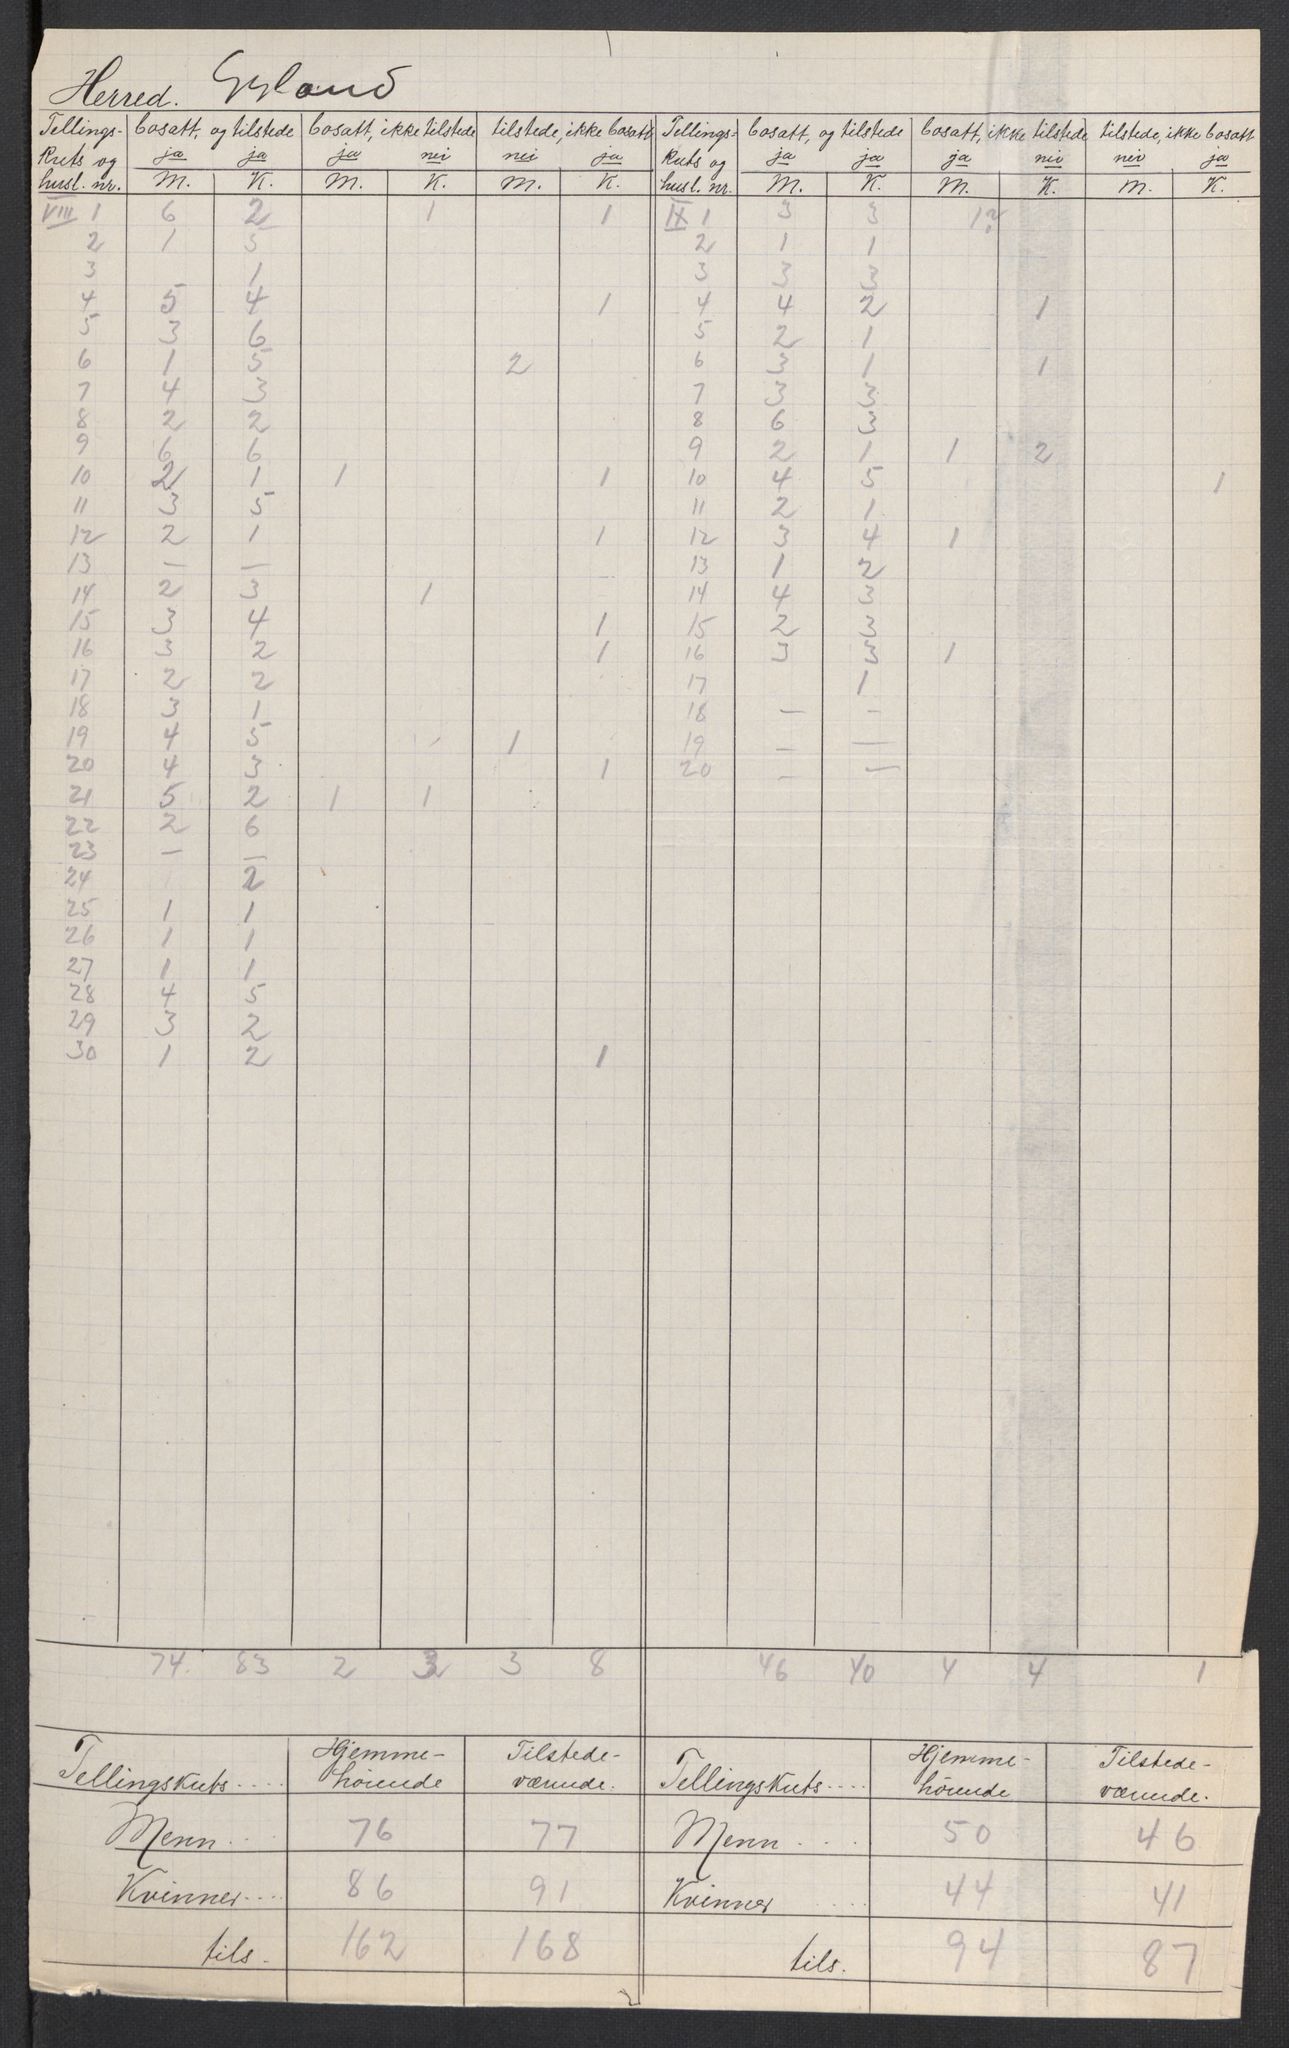 Herred. Gyland
Tellings- bosatt, og tilstede bosatt, ikke tilstede tilstede, ikke bosatt Tellings- bosatt, og tilstede bosatt, ikke tilstede tilstede, ikke bosatt
kuts og ja ja ja nei nei ja kuts og ja ja ja nei nei ja
husl. nr. M. K. M. K. M. K. husl. nr. M. K. M. K. M. K.
VIII 1 6 2 1 1 IX 1 3 3 1?
2 1 5 2 1 1
3 1 3 3 3
4 5 4 1 4 4 2 1
5 3 6 5 2 1
6 1 5 2 6 3 1 1
7 4 3 7 3 3
8 2 2 8 6 3
9 6 6 9 2 1 1 2
10 2 1 1 1 10 4 5 1
11 3 5 11 2 1
12 2 1 1 12 3 4 1
13 — — 13 1 2
14 2 3 1 14 4 3
15 3 4 1 15 2 3
16 3 2 1 16 3 3 1
17 2 2 17 1
18 3 1 18 — —
19 4 5 1 19 — —
20 4 3 1 20 — —
21 5 2 1 1
22 2 6
23 — —
24 2
25 1 1
26 1 1
27 1 1
28 4 5
29 3 2
30 1 2 1
74. 83 2 3 8 46 40 4 4 1
Tellingskuts.... Hjemme- Tilstede- Tellingskuts.... Hjemme- Tilstede-
hörende værende. hörende værende.
Menn... 76 77 Menn.... 50 46
Kvinner.... 86 91 Kvinner.... 44 41
tils. 162 168 tils. 94 87